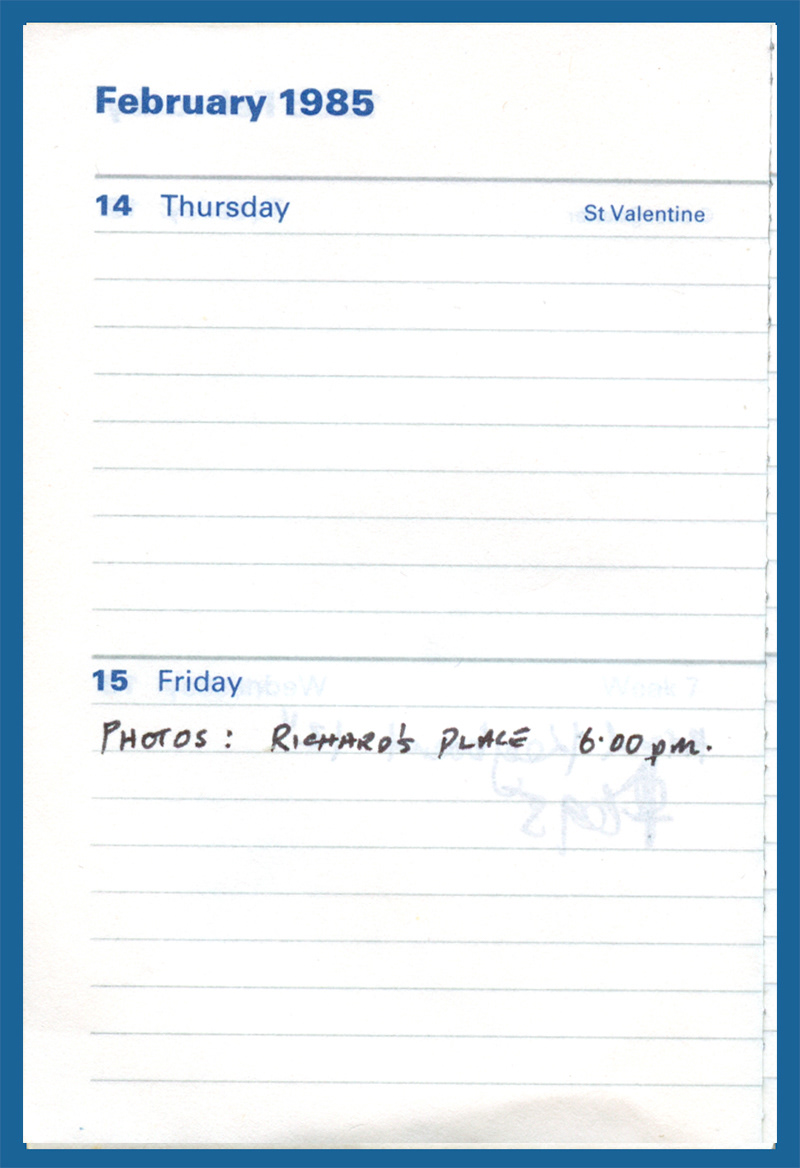 February 1985
14 Thursday St Valentine
15 Friday
PHOTOS: RICHARD'S PLACE 6.00 pm.